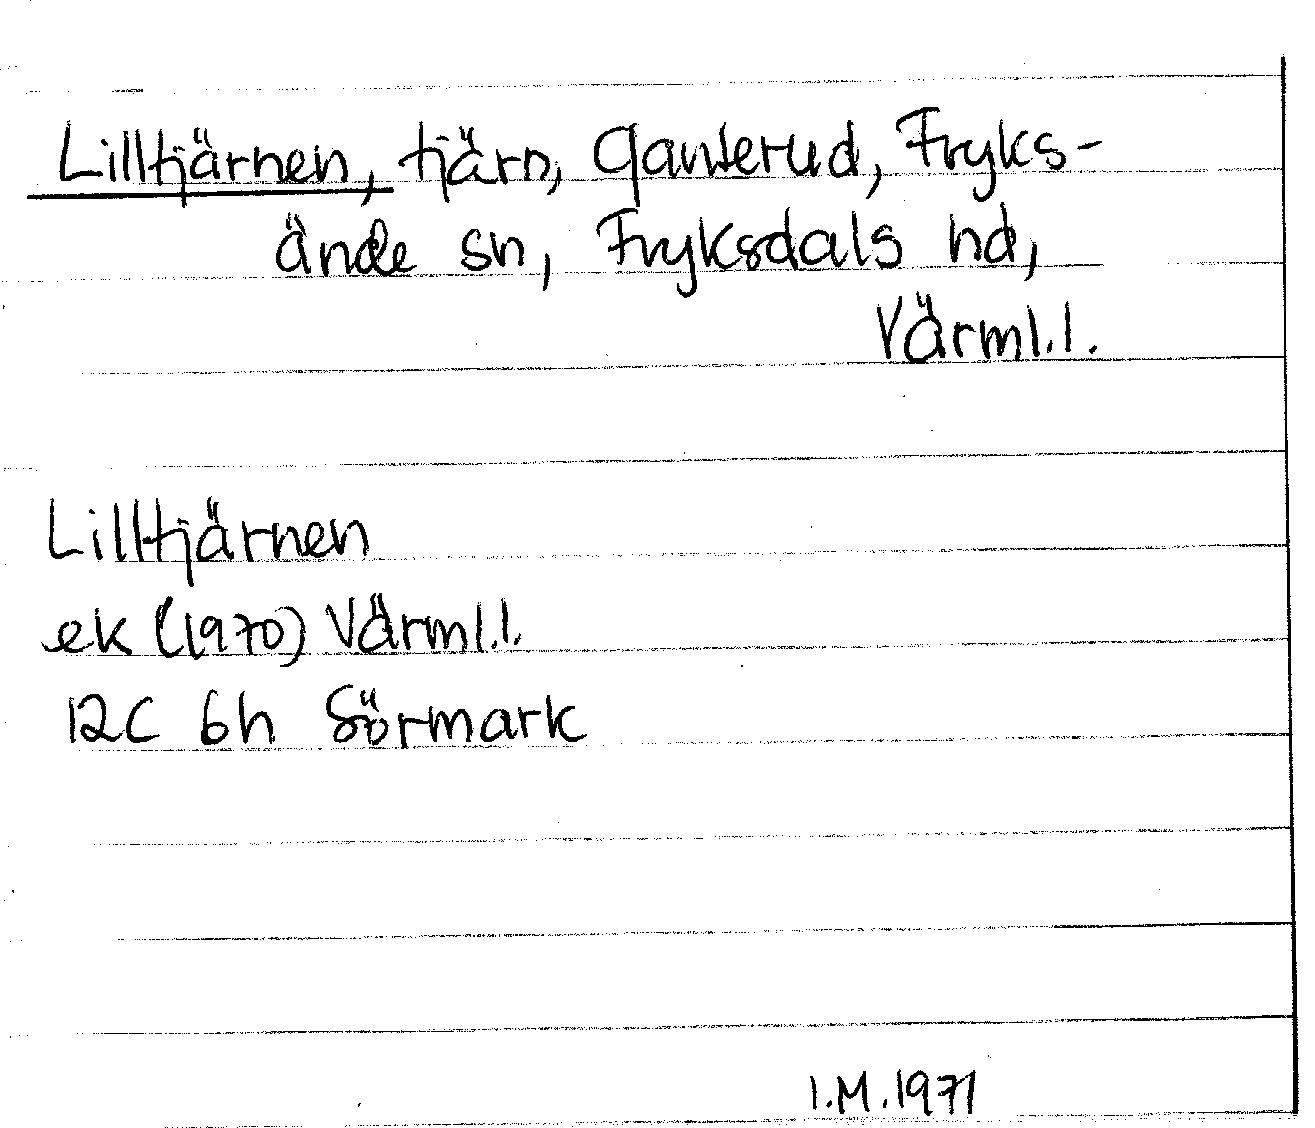 Lilltjärnen, tjärn, Ganterud, Fryks-
ände sn, Fryksdals hd,
Värml.l.
Lilltjärnen
ek (1970) Värml.l.
12C 6h Sörmark
I.M.1971